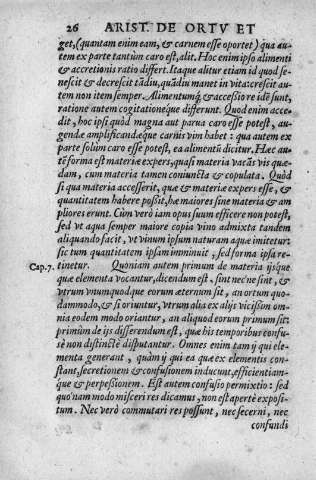 26 ARIST. DE ORTV ET
get, (quantam enim eam, & carnem esse oportet) qua au-
tem ex parte tantùm caro est, alit. Hoc enim ipso alimenti
& accretionis ratio differt. Itaque alitur etiam id quod se-
nescit & decrescit tãdiu, quãdiu manet in vita: crescit au-
tem non item semper. Alimentumq́; & accessio re idẽ sunt,
ratione autem cogitationeque differunt. Quod enim acce-
dit, hoc ipsi quòd magna aut parua caro esse potest, au-
gendæ amplificandæque carnis vim habet: qua autem ex
parte solùm caro esse potest, ea alimentũ dicitur. Hæc au-
tẽ forma est materiæ expers, quasi materia vacãs vis quæ-
dam, cum materia tamen coniuncta & copulata. Quòd
si qua materia accesserit, quæ & materiæ expers esse, &
quantitatem habere possit, hæ maiores sine materia & am
pliores erunt. Cùm verò iam opus suum efficere non potest,
sed vt aqua semper maiore copia vino admixta tandem
aliquando facit, vt vinum ipsum naturam aquæ imitetur:
sic tum quantitatem ipsam imminuit, sed forma ipsa re-
Cap. 7. tinetur. Quoniam autem primum de materia ijsque
quæ elementa vocantur, dicendum est, sint nec'ne sint, &
vtrùm vnumquodque eorum æternum sit, an ortum quo-
dammodo, & si oriuntur, vtrum alia ex alijs vicissim om-
nia eodem modo oriantur, an aliquod eorum primùm sit:
primùm de ijs disserendum est, quæ his temporibus confu-
sè non distinctè disputantur. Omnes enim tam ij qui ele-
menta generant, quàm ij qui ea quæ ex elementis con-
stant, secretionem & confusionem inducunt, efficientiam-
que & perpessionem. Est autem confusio permixtio: sed
quo'nam modo misceri res dicamus, non est apertè exposi-
tum. Nec verò commutari res possunt, nec secerni, nec
confundi